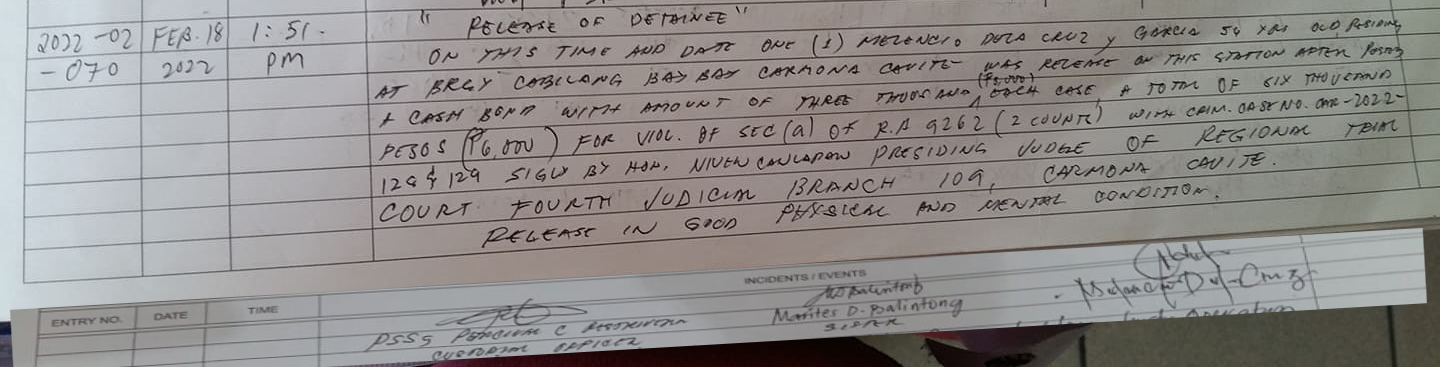 2022-02 FEB. 18 1:51. "RELEASE OF DETAINEE"
-070 2022 PM ON THIS TIME AND DATE ONE (1) MELENCIO DELA CRUZ y GARCIA 54 YRS OLD RESIDING
AT BRGY CABILANG BAY BAY CARMONA CAVITE WAS RELEASE ON THIS STATION AFTER POSTING
A CASH BOND WITH AMOUNT OF THREE THOUSAND (₱3,000) EACH CASE, A TOTAL OF SIX THOUSAND
PESOS (₱6,000) FOR VIOL. OF SEC (a) OF R.A 9262 (2 COUNTS) WITH CRIM. CASE NO. CAR-2022-
128 & 129 SIGN BY HON. NIVEN PRESIDING JUDGE OF REGIONAL TRIAL
COURT FOURTH JUDICIAL BRANCH 109, CARMONA CAVITE.
RELEASE IN GOOD PHYSICAL AND MENTAL CONDITION.
ENTRY NO. DATE TIME INCIDENTS / EVENTS
PSSg C
CUSTODIAL OFFICER
Marites D. Balintong
SISTER
Dela Cruz